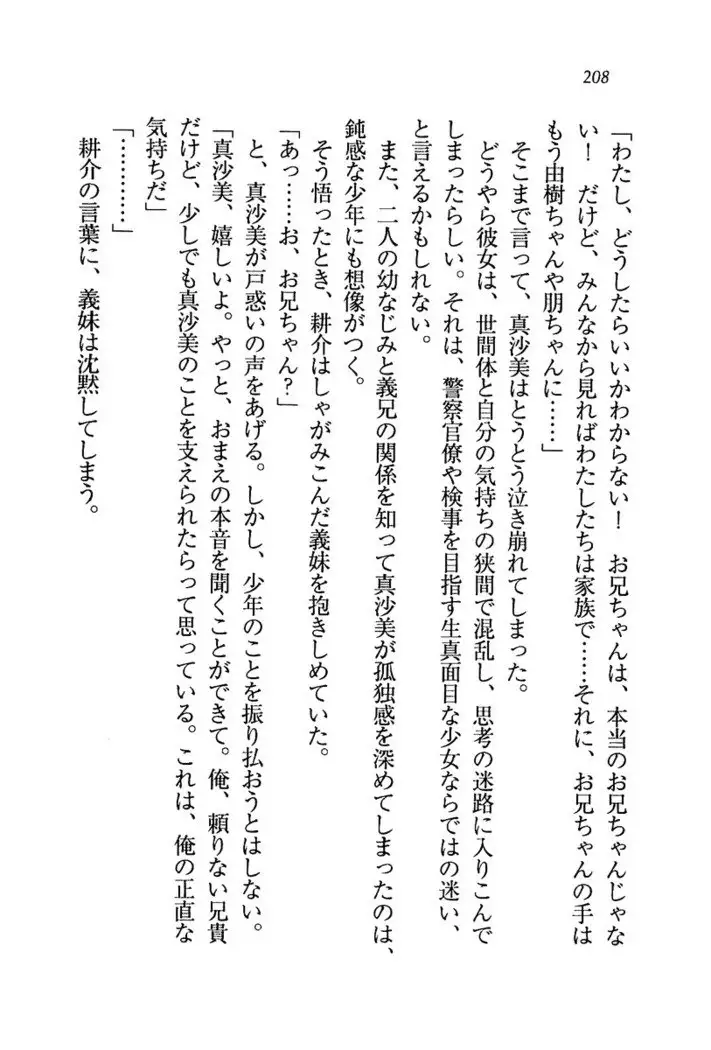 208
「わたし、どうしたらいいかわからない！　お兄ちゃんは、本当のお兄ちゃんじゃな
い！　だけど、みんなから見ればわたしたちは家族で……それに、お兄ちゃんの手は
もう由樹ちゃんや朋ちゃんに……」
そこまで言って、真沙美はとうとう泣き崩れてしまった。
どうやら彼女は、世間体と自分の気持ちの狭間で混乱し、思考の迷路に入りこんで
しまったらしい。それは、警察官僚や検事を目指す生真面目な少女ならではの迷い、
と言えるかもしれない。
また、二人の幼なじみと義兄の関係を知って真沙美が孤独感を深めてしまったのは、
鈍感な少年にも想像がつく。
そう悟ったとき、耕介はしゃがみこんだ義妹を抱きしめていた。
「あっ……お、お兄ちゃん？」
と、真沙美が戸惑いの声をあげる。しかし、少年のことを振り払おうとはしない。
「真沙美、嬉しいよ。やっと、おまえの本音を聞くことができて。俺、頼りない兄貴
だけど、少しでも真沙美のことを支えられたらって思っている。これは、俺の正直な
気持ちだ」
「…………」
耕介の言葉に、義妹は沈黙してしまう。